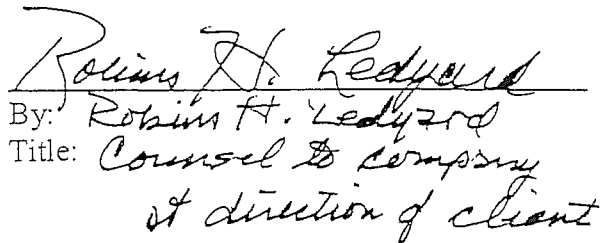 Robins H. Ledyard
By: Robins H. Ledyard
Title: Counsel to company
at direction of client